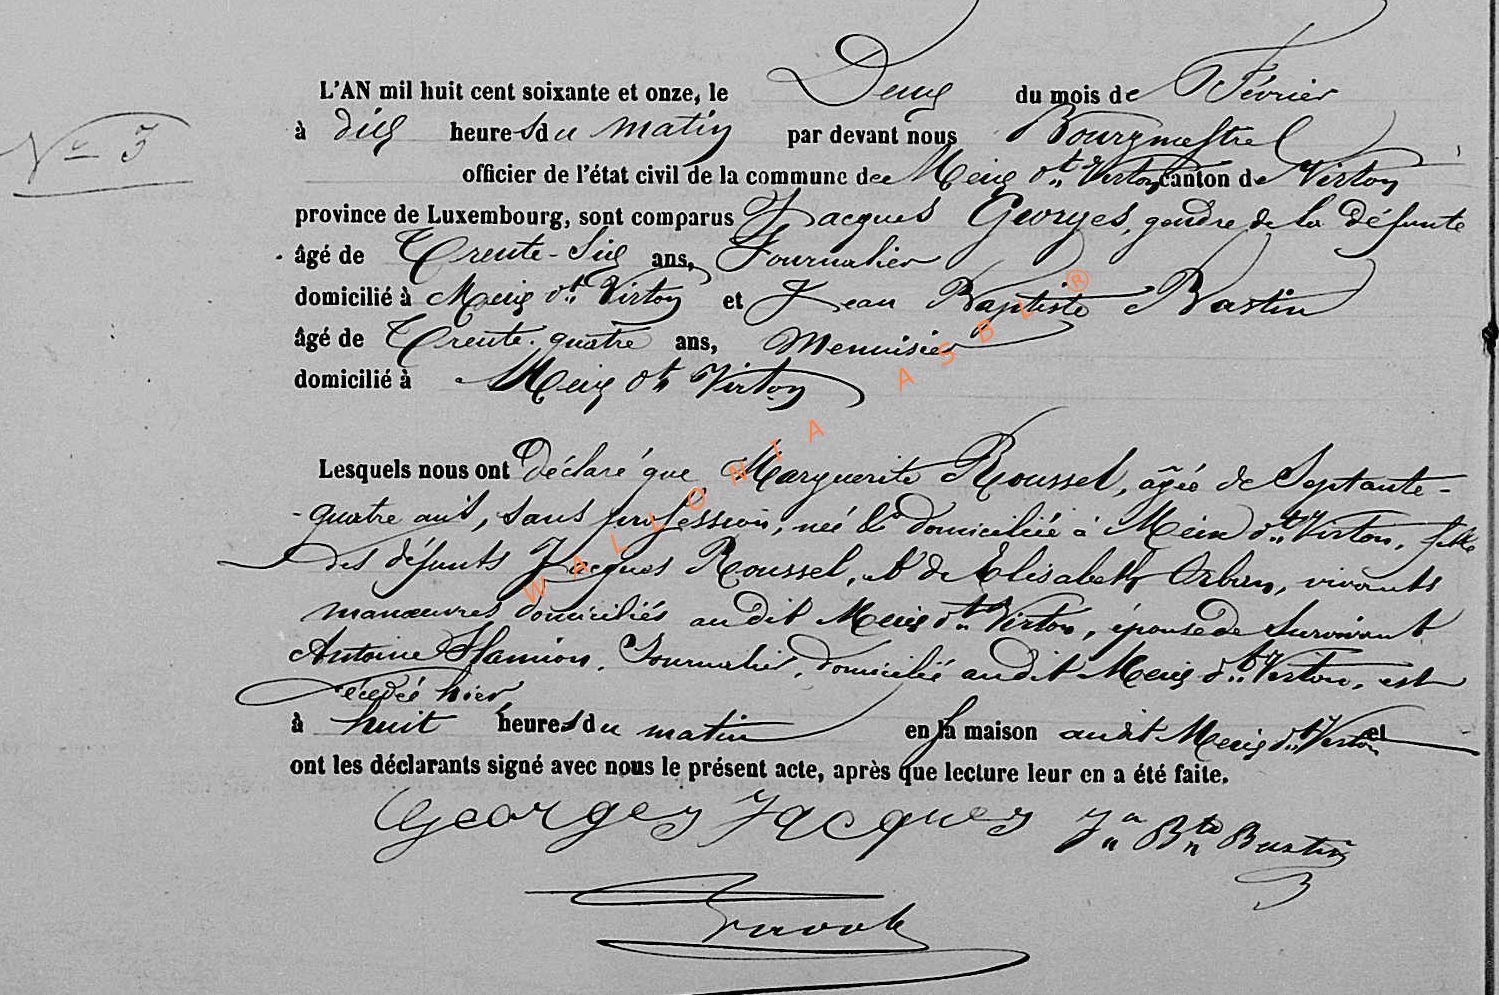 L'AN mil huit cent soixante et onze, le Deux du mois de Février
N° 3
à dix heures du matin par devant nous Bourgmestre
officier de l'état civil de la commune de Meix dt Virton canton de Virton
province de Luxembourg, sont comparus Jacques Georges, gendre de la défunte
âgé de Trente-Six ans, Journalier
domicilié à Meix dt Virton et Jean Baptiste Bastin
âgé de Trente-quatre ans, Menuisier
domicilié à Meix dt Virton
Lesquels nous ont déclaré que Marguerite Roussel, âgée de Septante-
-quatre ans, sans profession, née & domiciliée à Meix dt Virton, fille
des défunts Jacques Roussel, & de Elisabeth, vivants
manœuvres domiciliés audit Meix dt Virton, épouse de Survivant
Antoine Hamion, Journalier, domicilié audit Meix dt Virton, est
décédée hier
à huit heures du matin en sa maison audit Meix dt Virton et
ont les déclarants signé avec nous le présent acte, après que lecture leur en a été faite.
Georges Jacques Jn Bte Bastin
WALLONIA ASBL ®